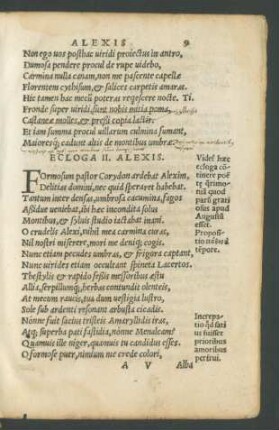 ALEXIS. 9
Non ego uos posthac uiridi proiectus in antro,
Dumosa pendere procul de rupe uidebo,
Carmina nulla canam, non me pascente capellæ
Florentem cythisum, & salices carpetis amaras.
Hic tamen hac mecū poteras requiescere nocte. Ti.
Fronde super uiridi, sunt nobis mitia poma,
Castaneæ molles, & pressi copia lactis:
Et iam summa procul uillarum culmina fumant,
Maioresq; cadunt altis de montibus umbræ.
ECLOGA II. ALEXIS.
FOrmosum pastor Corydon ardebat Alexim,
Delitias domini, nec quid speraret habebat.
Tantum inter densas, umbrosa cacumina, fagos
Assidue ueniebat, ibi hæc incondita solus
Montibus, & syluis studio iactabat inani.
O crudelis Alexi, nihil mea carmina curas,
Nil nostri miserere, mori me deniq; cogis.
Nunc etiam pecudes umbras, & frigora captant,
Nunc uirides etiam occultant spineta lacertos.
Thestylis & rapido fessis messoribus æstu
Allia, serpillumq; herbas contundit olenteis,
At mecum raucis, tua dum uestigia lustro,
Sole sub ardenti resonant arbusta cicadis.
Nonne fuit satius tristeis Amaryllidis iras,
Atq; superba pati fastidia, nonne Menalcam?
Quamuis ille niger, quamuis tu candidus esses.
O formose puer, nimium ne crede colori,
A V Alba
Videt hæc
ecloga cō
tinere poë
tę
quod
parū grati
osus apud
Augustū
esset.
Propositi
o
Increpa-
tio
us fuisset
prioribus
amoribus
perfrui.